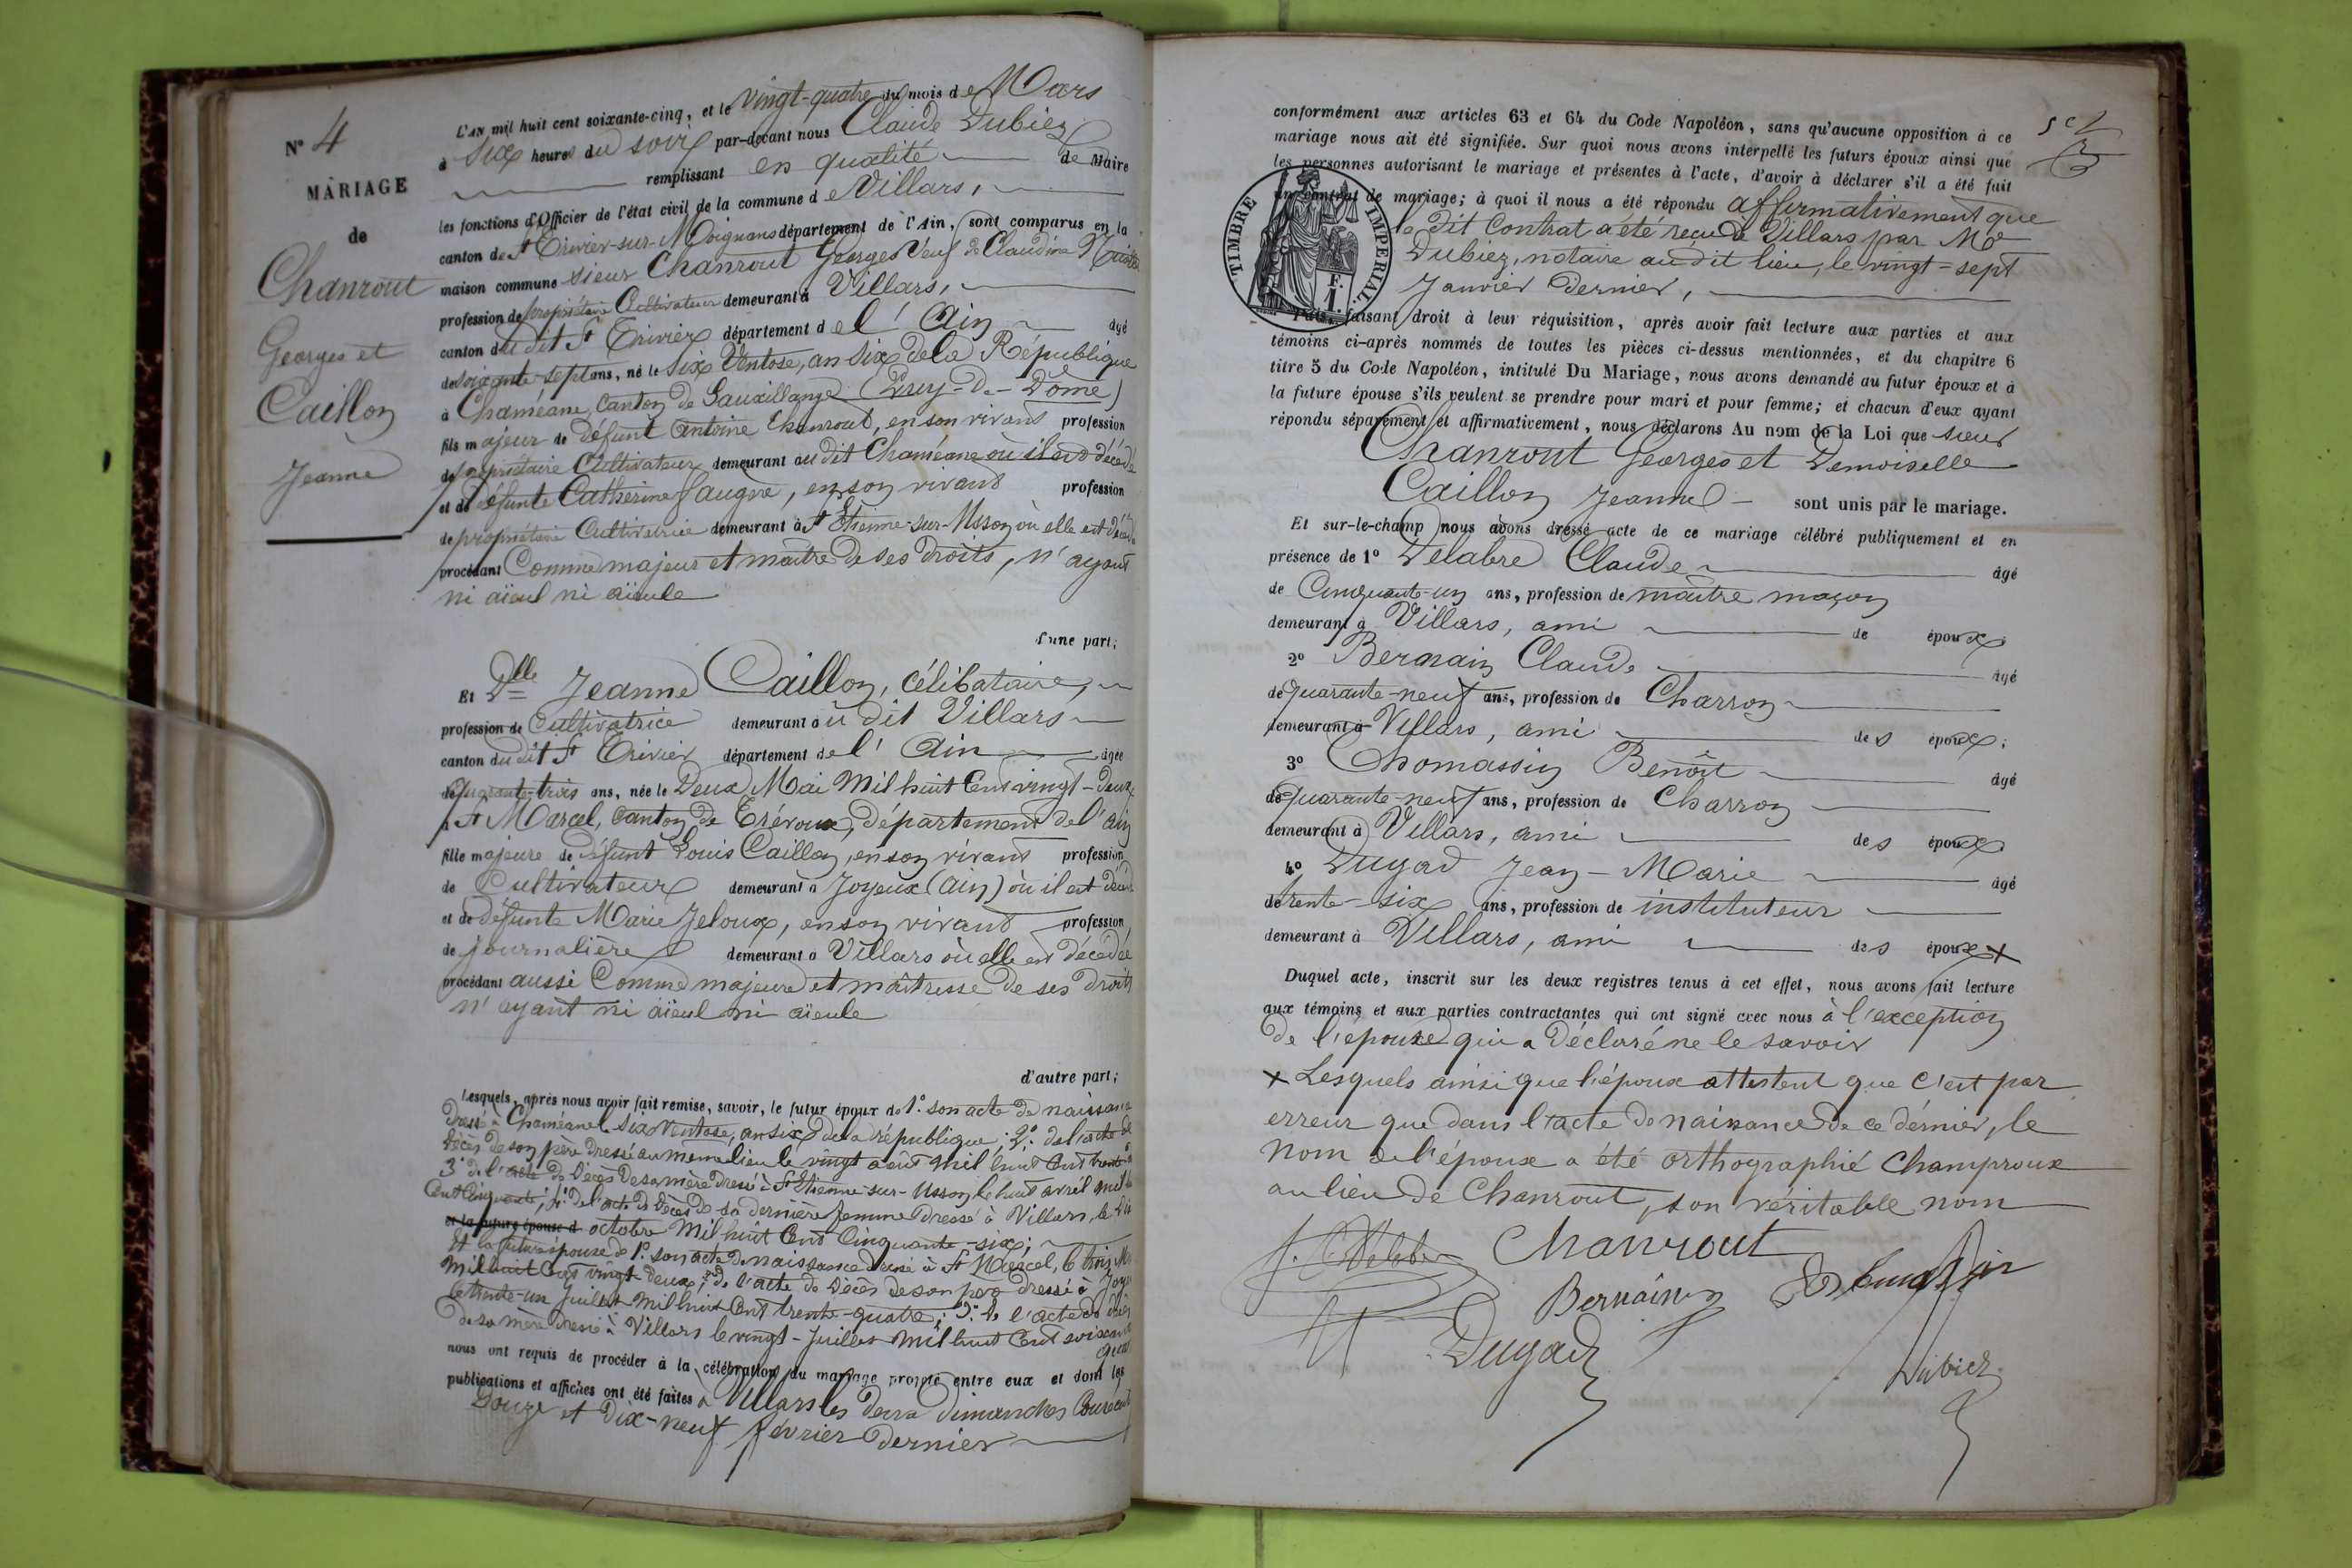 N° 4
MARIAGE
de
Chanrout
Georges et
Caillon
Jeanne
L'AN mil huit cent soixante-cinq, et le vingt-quatre du mois de Mars
à six heures du soir par-devant nous Claude Dubiez
remplissant en qualité de Maire
les fonctions d'Officier de l'état civil de la commune de Villars,
canton de St Trivier-sur-Moignans département de l'Ain, sont comparus en la
maison commune sieur Chanrout Georges veuf de Claudine
profession de propriétaire Cultivateur demeurant à Villars,
canton du dit St Trivier département de l'Ain âgé
de soixante-sept ans, né le six Ventose, an six de la République
à Chaméane, canton de Sauxillange (Puy-de-Dôme)
fils majeur de défunt Antoine Chanrout, en son vivant profession
de propriétaire Cultivateur demeurant au dit Chaméane où il est décédé
et de défunte Catherine Saugne, en son vivant profession
de propriétaire Cultivatrice demeurant à St Etienne-sur-Usson où elle est décédée
procédant Comme majeur et maître de ses droits, n'ayant
ni aïeul ni aïeule
d'une part;
Et Dlle Jeanne Caillon, célibataire,
profession de Cultivatrice demeurant au dit Villars
canton du dit St Trivier département de l'Ain âgée
de quarante-trois ans, née le Deux Mai Mil huit Cent vingt-deux
à St Marcel, canton de Trévoux, département de l'ain
fille majeure de défunt Louis Caillon, en son vivant profession
de Cultivateur demeurant à Joyeux (Ain) où il est décédé
et de défunte Marie Jeloux, en son vivant profession
de journalière demeurant à Villars où elle est décédée
procédant aussi Comme majeure et maîtresse de ses droits
n'ayant ni aïeul ni aïeule
d'autre part;
Lesquels, après nous avoir fait remise, savoir, le futur époux de 1°. son acte de naissance
dressé à Chaméane le six Ventose, an six de la république; 2°. de l'acte de
décès de son père dressé au même lieu le vingt août mil huit Cent trente
3° de l'acte de Décès de sa mère dressé à St Etienne-sur-Usson le huit avril mil
Cent Cinquante; 4°. de l'acte de Décès de sa dernière femme dressé à Villars, le
et la future épouse d octobre Mil huit Cent Cinquante-six;
Et la future épouse de 1°. son acte de naissance dressé à St Marcel, le trois Mai
Mil huit Cent vingt-deux; 2° de l'acte de Décès de son père dressé à
le trente-un Juillet Mil huit Cent trente-quatre; 3°. de l'acte de décès
de sa mère dressé à Villars le vingt-Juillet Mil huit Cent soixante
nous ont requis de procéder à la célébration du mariage projeté entre eux et dont les
publications et affiches ont été faites à Villars les deux dimanches
Douze et Dix-neuf février dernier
conformément aux articles 63 et 64 du Code Napoléon, sans qu'aucune opposition à ce
mariage nous ait été signifiée. Sur quoi nous avons interpellé les futurs époux ainsi que
les personnes autorisant le mariage et présentes à l'acte, d'avoir à déclarer s'il a été fait
un contrat de mariage; à quoi il nous a été répondu affirmativement que
le dit Contrat a été reçu à Villars par Me
Dubiez, notaire au dit lieu, le vingt-sept
Janvier dernier,
TIMBRE IMPERIAL.
Puis, faisant droit à leur réquisition, après avoir fait lecture aux parties et aux
témoins ci-après nommés de toutes les pièces ci-dessus mentionnées, et du chapitre 6
titre 5 du Code Napoléon, intitulé Du Mariage, nous avons demandé au futur époux et à
la future épouse s'ils veulent se prendre pour mari et pour femme; et chacun d'eux ayant
répondu séparément et affirmativement, nous déclarons Au nom de la Loi que sieur
Chanrout Georges et Demoiselle
Caillon Jeanne sont unis par le mariage.
Et sur-le-champ nous avons dressé acte de ce mariage célébré publiquement et en
présence de 1° Delabre Claude âgé
de Cinquante-un ans, profession de maître maçon
demeurant à Villars, ami de époux
2° Bernain Claude âgé
de quarante-neuf ans, profession de Charron
demeurant à Villars, ami des époux;
3° Thomassin Benoît âgé
de quarante-neuf ans, profession de Charron
demeurant à Villars, ami des époux
4° Dugad Jean-Marie âgé
de trente-six ans, profession de instituteur
demeurant à Villars, ami des époux x
Duquel acte, inscrit sur les deux registres tenus à cet effet, nous avons fait lecture
aux témoins et aux parties contractantes qui ont signé avec nous à l'exception
de l'épouse qui a déclaré ne le savoir
x Lesquels ainsi que l'époux attestent que c'est par
erreur que dans l'acte de naissance de ce dernier, le
nom de l'époux a été orthographié Champroux
au lieu de Chanrout, son véritable nom
Chanrout
Bernain
Dugad
Dubiez